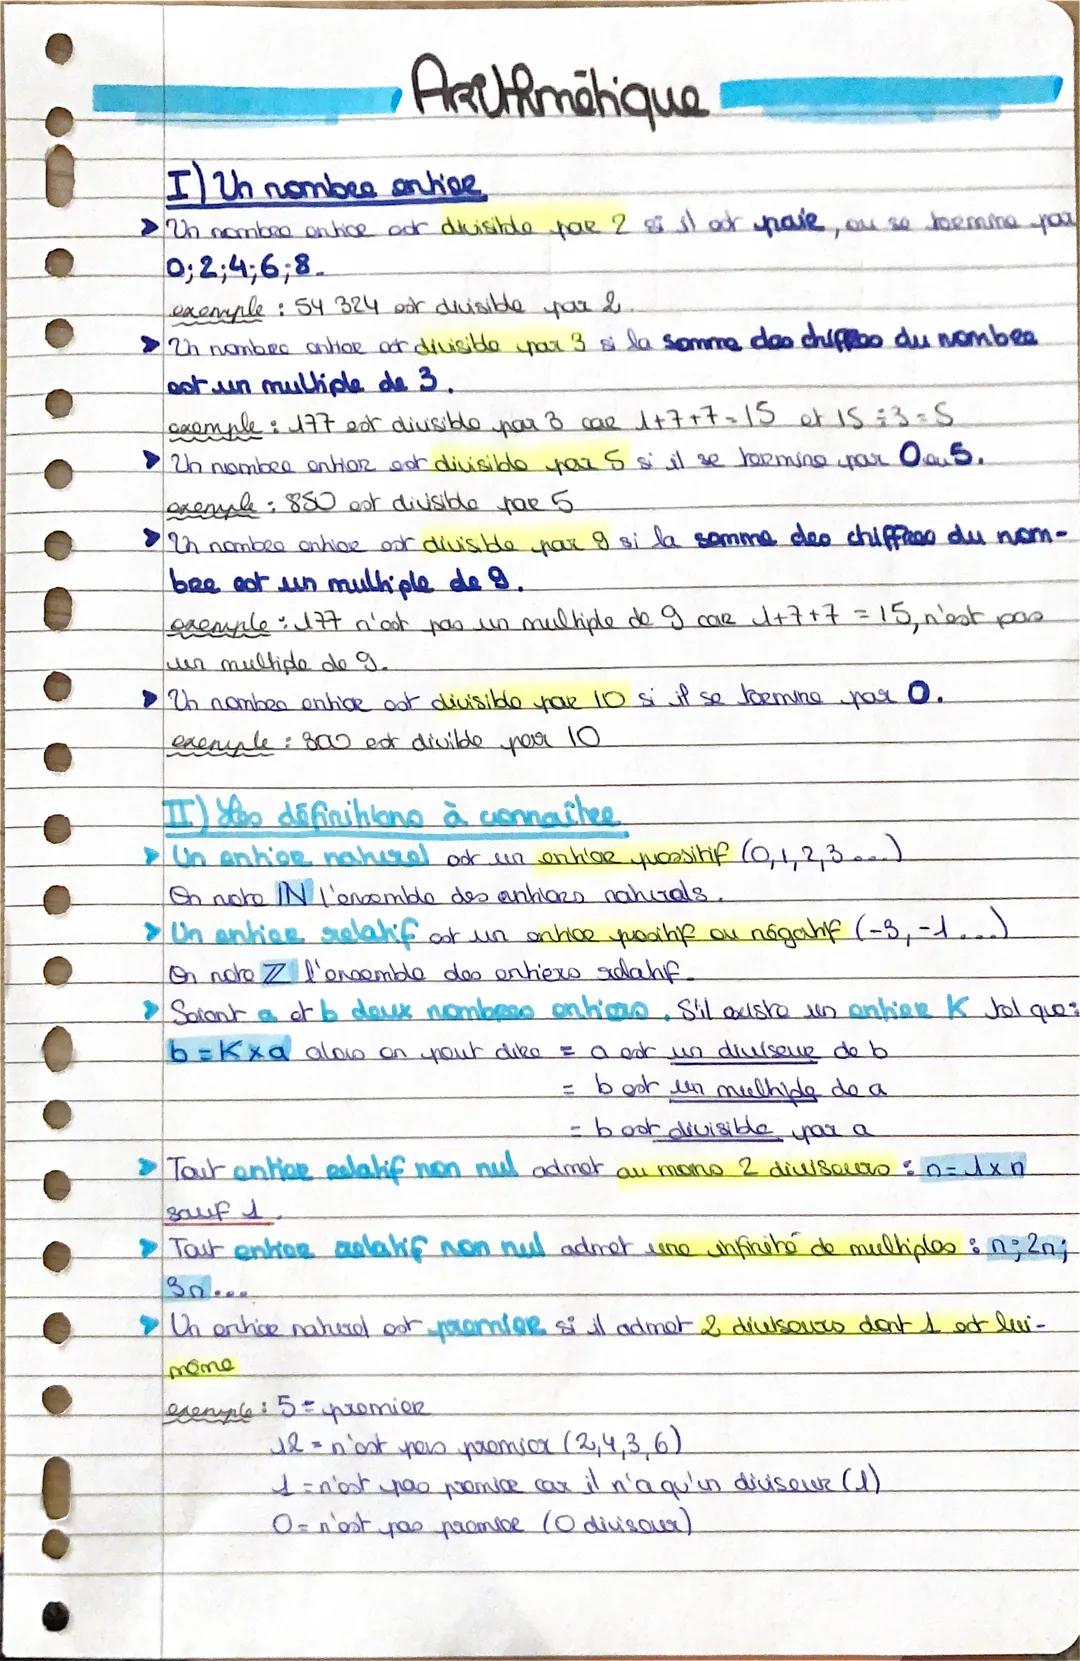 Arithmétique
I) Un nombre entier
➤ Un nombre entier est divisible par 2 si il est paie, ou se termine par
0; 2; 4; 6; 8.
exemple : 54 324 est divisible par 2.
➤ Un nombre entier est divisible par 3 si la somme des chiffres du nombre
est un multiple de 3.
exemple : 177 est divisible par 3 car 1+7+7=15 et 15÷3=5
➤ Un nombre entier est divisible par 5 si il se termine par 0 ou 5.
exemple : 850 est divisible par 5
➤ Un nombre entier est divisible par 9 si la somme des chiffres du nom-
bre est un multiple de 9.
exemple : 177 n'est pas un multiple de 9 car 1+7+7 = 15, n'est pas
un multiple de 9.
➤ Un nombre entier est divisible par 10 si il se termine par 0.
exemple : 800 est divible par 10
II) Les définitions à connaître
➤ Un entier naturel est un entier possitif (0,1,2,3 ...)
On note IN l'ensemble des entiers naturels.
➤ Un entier relatif est un entier positif ou négatif (-3, -1 ...)
On note Z l'ensemble des entiers relatif.
➤ Soient a et b deux nombres entiers. S'il existe un entier K tel que :
b = K x a alors on peut dire = a est un diviseur de b
= b est un multiple de a
= b est divisible par a
➤ Tout entier relatif non nul admet au moins 2 diviseurs : n = 1 x n
sauf 1.
➤ Tout entier relatif non nul admet une infinité de multiples : n; 2n;
3n...
➤ Un entier naturel est premier si il admet 2 diviseurs dont 1 et lui-
même
exemple : 5 = premier
12 = n'est pas premier (2,4,3,6)
1 = n'est pas premier car il n'a qu'un diviseur (1)
0 = n'est pas premier (0 diviseur)